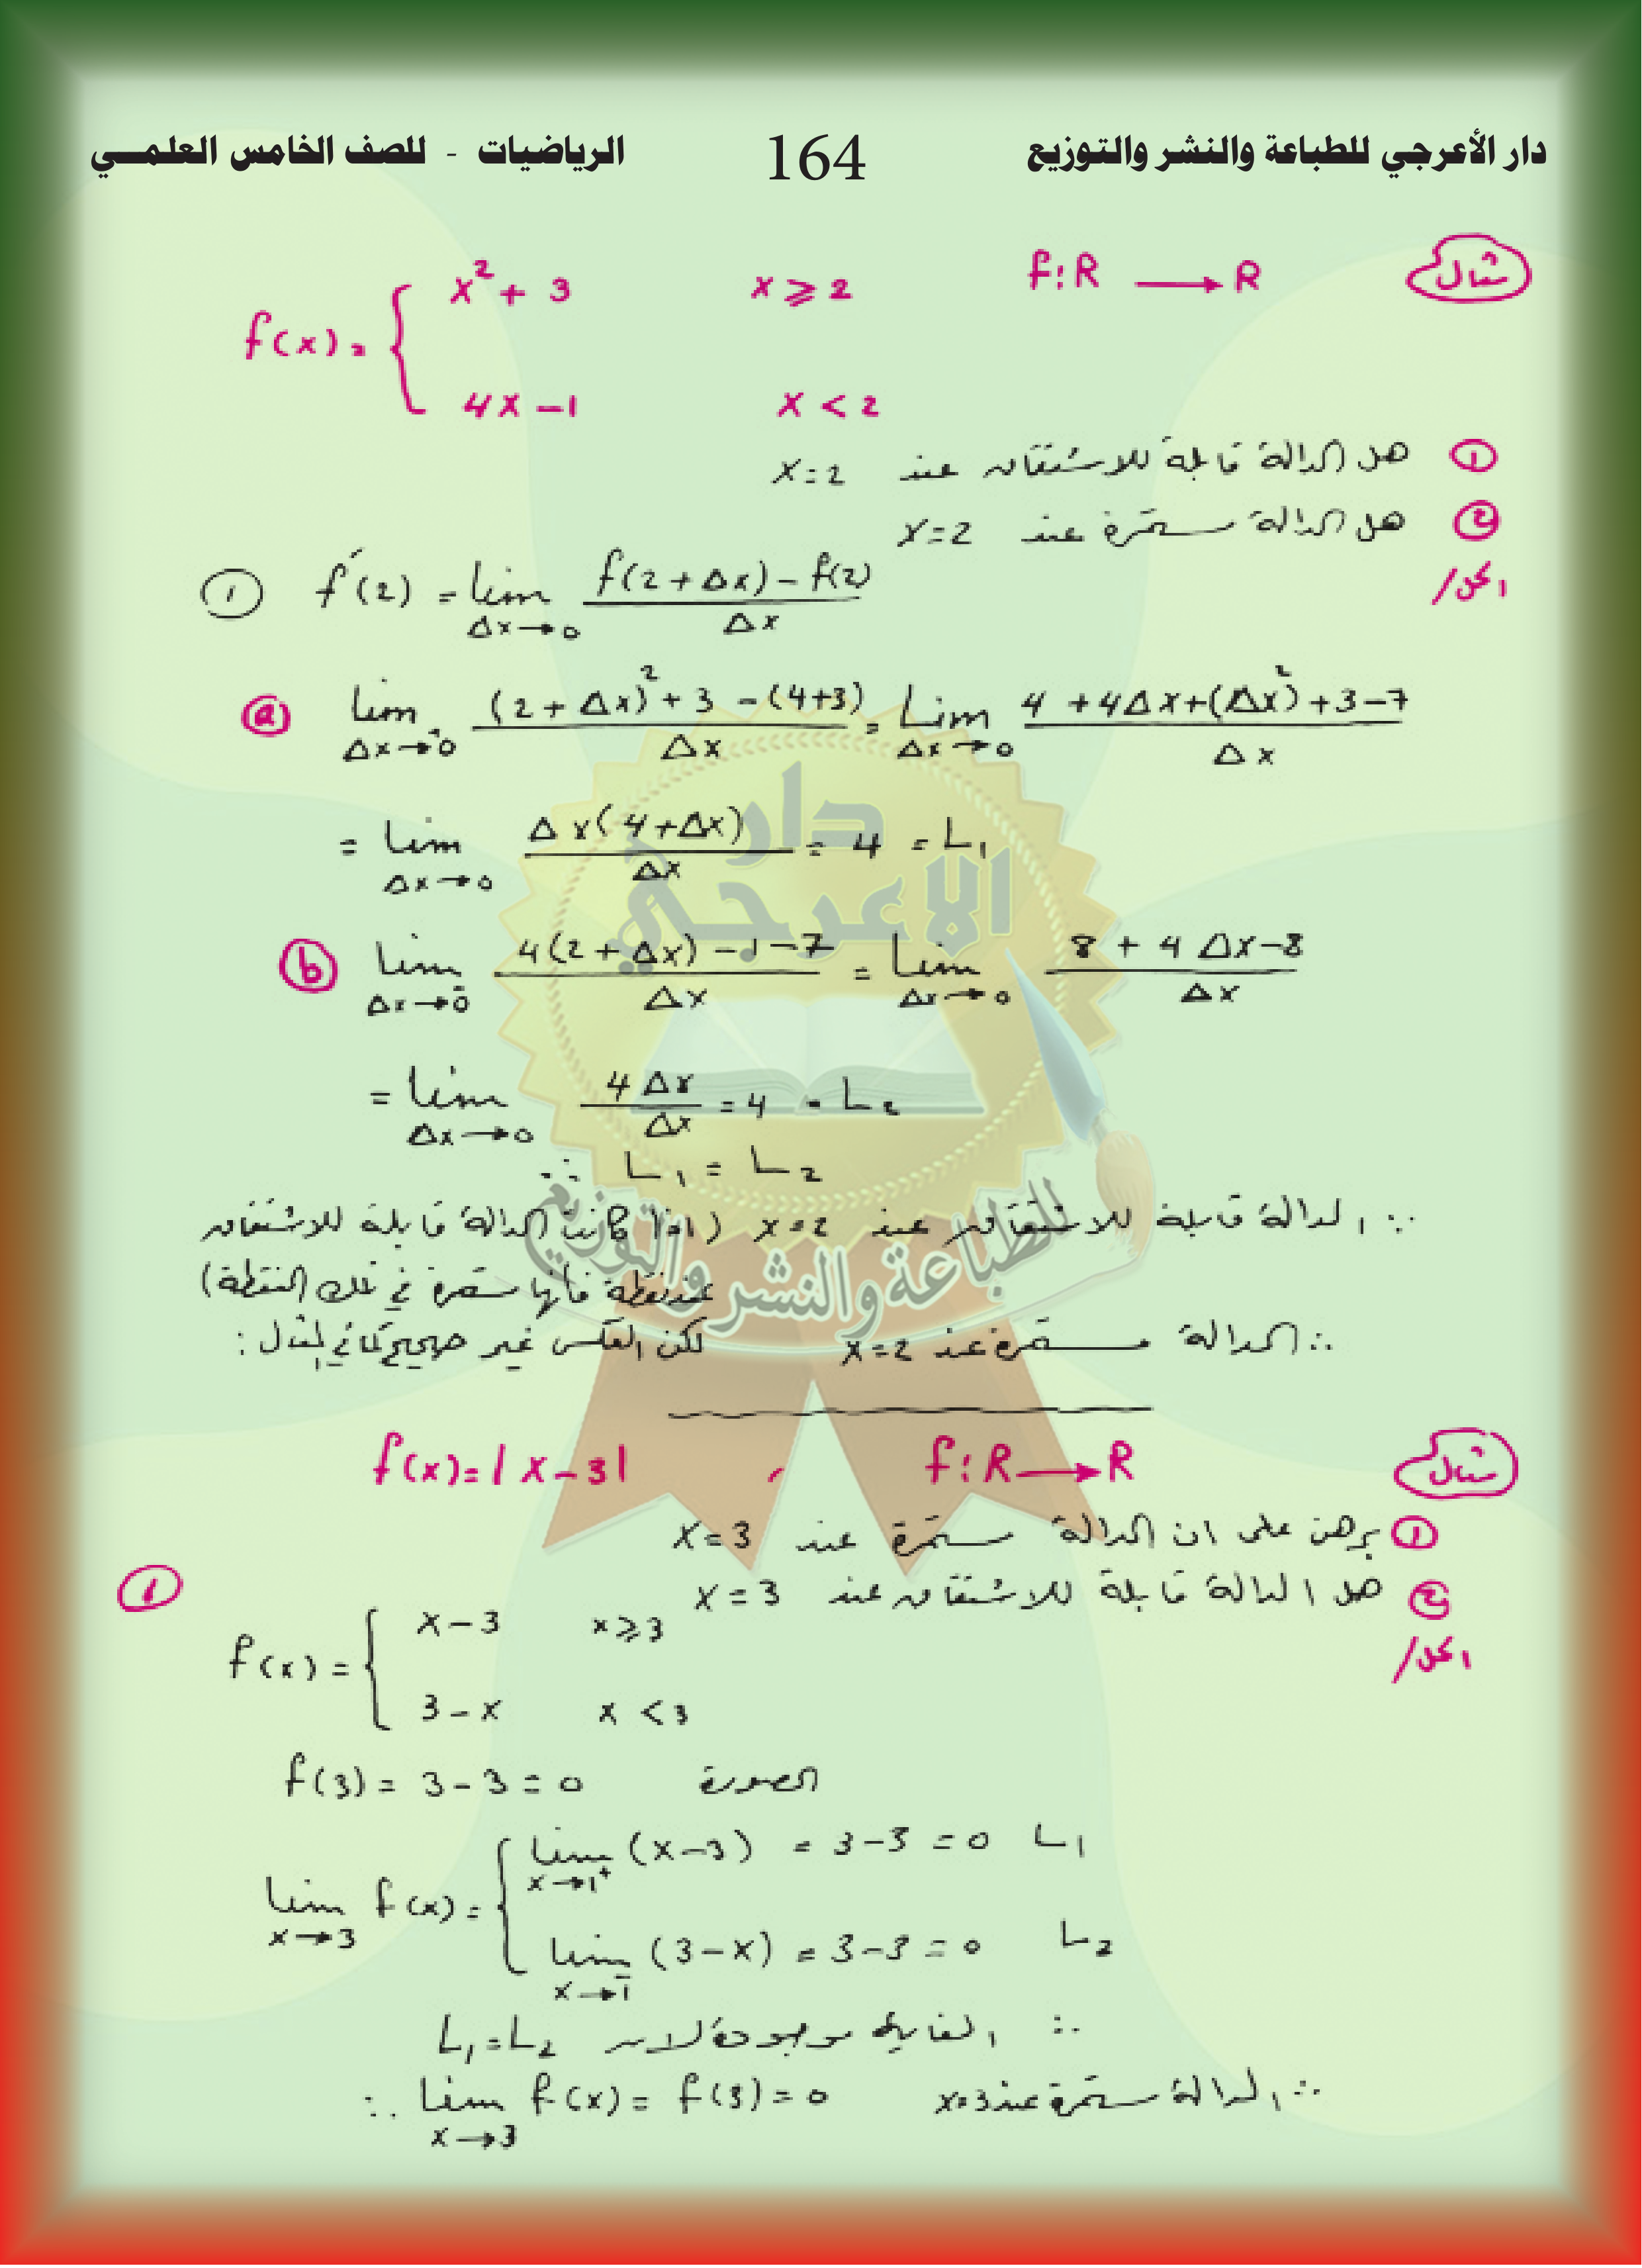 دار الأعرجي للطباعة والنشر والتوزيع 164 الرياضيات - للصف الخامس العلمي
مثال f: R → R
f(x) = { x² + 3 x ≥ 2
4x - 1 x < 2
① هل الدالة قابلة للاشتقاق عند x = 2
② هل الدالة مستمرة عند x = 2
الحل/
① f′(2) = lim Δx→0 f(2 + Δx) - f(2) / Δx
ⓐ lim Δx→0⁺ (2 + Δx)² + 3 - (4+3) / Δx = Lim Δx→0 4 + 4Δx + (Δx)² + 3 - 7 / Δx
= lim Δx→0 Δx(4 + Δx) / Δx = 4 = L₁
ⓑ lim Δx→0⁻ 4(2 + Δx) - 1 - 7 / Δx = lim Δx→0 8 + 4Δx - 8 / Δx
= lim Δx→0 4Δx / Δx = 4 = L₂
∵ L₁ = L₂
∴ الدالة قابلة للاشتقاق عند x = 2 (اذا كانت الدالة قابلة للاشتقاق
عند نقطة فانها مستمرة في تلك النقطة)
∴ الدالة مستمرة عند x = 2 لكن العكس غير صحيح كما في المثال :
مثال f: R → R ، f(x) = |x - 3|
① برهن على ان الدالة مستمرة عند x = 3
② هل الدالة قابلة للاشتقاق عند x = 3
الحل/
① f(x) = { x - 3 x ≥ 3
3 - x x < 3
f(3) = 3 - 3 = 0 الصورة
lim x→3 f(x) = { lim x→1⁺ (x - 3) = 3 - 3 = 0 L₁
lim x→1⁻ (3 - x) = 3 - 3 = 0 L₂
∴ الغاية موجودة لان L₁ = L₂
∴ lim x→3 f(x) = f(3) = 0 ∴ الدالة مستمرة عند x = 3
دار
الاعرجي
للطباعة والنشر والتوزيع